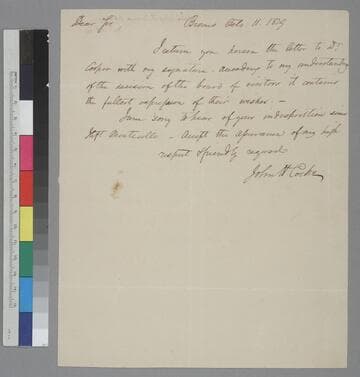 Dear Sir, Bremo Octo. 11. 1819
I return you hereon the letter to Dr
Cooper with my signature. according to my understanding
of the session of the board of visitors it contains
the fullest expression of their wishes. —
I am sorry to hear of your indisposition since
I left Monticello — Accept the assurance of my high
respect & friendly regard
John H Cocke